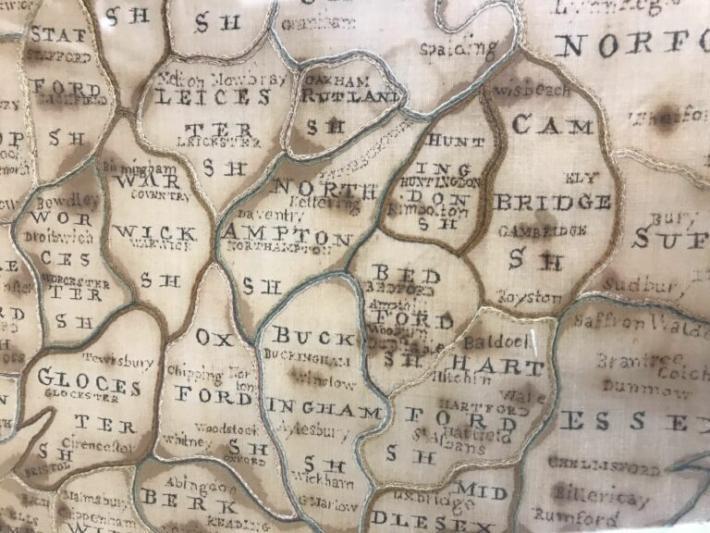 SH
SH
Grantham
STAF
STAFFORD
FORD
LICHFIELD
SH
Spalding
NORFO
Melton Mowbray
LEICES
TER
LEICESTER
SH
OAKHAM
RUTLAND
SH
Wisbeach
CAM
ELY
BRIDGE
CAMBRIDGE
SH
Royston
HUNT
ING
HUNTINGDON
DON
Kimbolton
SH
Birmingham
WAR
COVENTRY
WICK
WARWICK
SH
NORTH
Kettering
Daventry
AMPTON
NORTHAMPTON
SH
Bewdley
WOR
Droitwich
CES
WORCESTER
TER
SH
Bury
SUF
Sudbury
BED
BEDFORD
Ampthill
FORD
Wooburn
SH
Saffron Wald
Braintree
Colch
Dunmow
ESSEX
CHELMSFORD
Billericay
Rumford
Baldock
HART
Hitchin
Ware
HARTFORD
FORD
Hatfield
St Albans
SH
OX
Chipping Nor
ton
FORD
Woodstock
Whitney
SH
OXFORD
BUCK
BUCKINGHAM
Winslow
INGHAM
Aylesbury
SH
Wickham
G Marlow
Tewksbury
GLOCES
GLOCESTER
TER
Cirencester
SH
BRISTOL
Malmsbury
Chippenham
WIL
Abingdon
BERK
READING
Uxbridge
MID
DLESEX